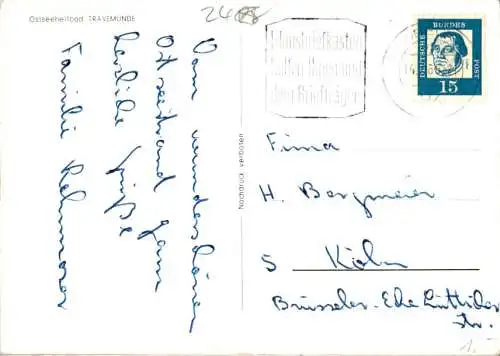 Ostseeheilbad TRAVEMÜNDE
Vom wunderschönen
Ostseestrand ganz
herzliche Grüße
Familie
Nachdruck verboten
Hausbriefkasten
helfen Ihnen und
dem Briefträger
DEUTSCHE
BUNDES
POST
15
Firma
H. Bergmeier
5 Köln
Brüsseler- Ecke Lütticher
Str.
1.-